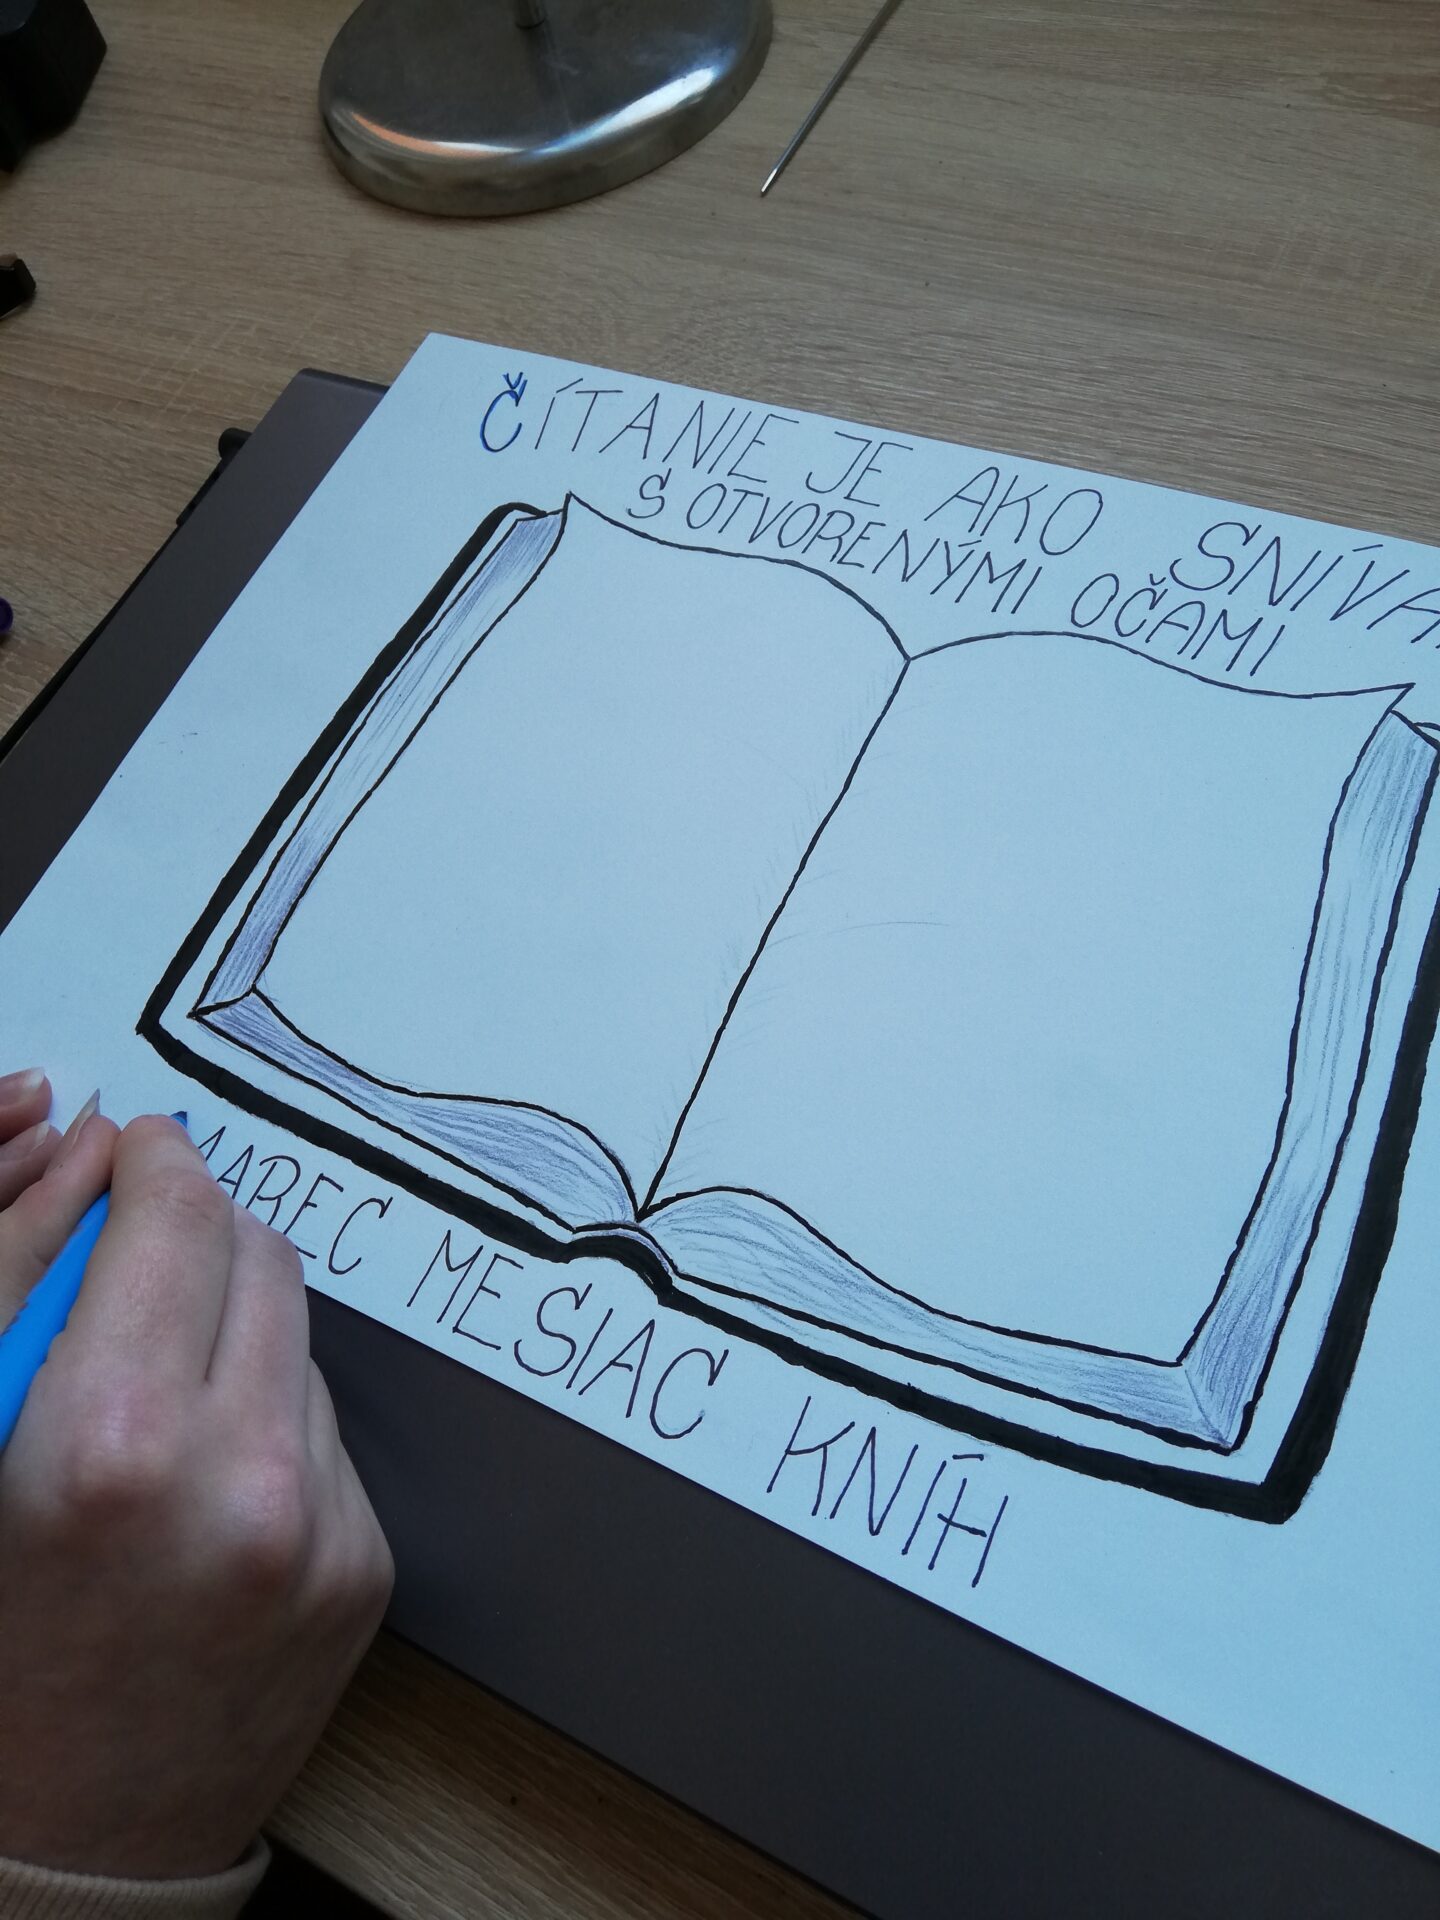 ČÍTANIE JE AKO
S OTVORENÝMI OČAMI
MAREC MESIAC KNÍH